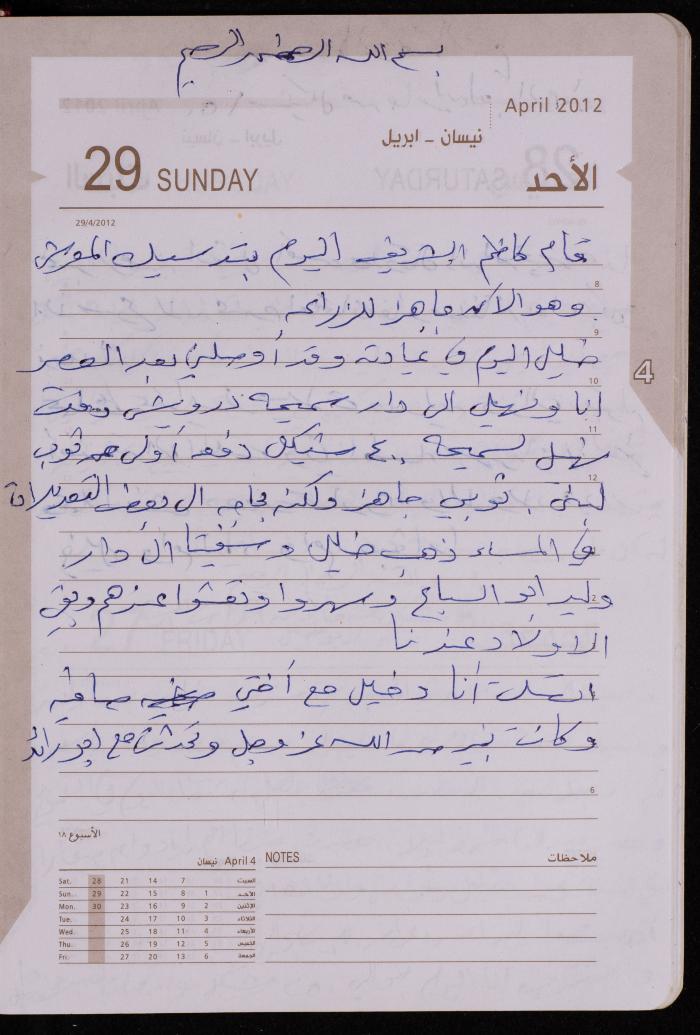 بسم الله الرحمن الرحيم
April 2012
نيسان - ابريل
29 SUNDAY
الأحد
29/4/2012
قام كاظم الشريف اليوم بتدسيك المفرش
8
وهو الآن جاهز للزراعة
9
خليل اليوم في عيادته وقد أوصلني بعد العصر
10
انا ونهيل الى دار سميحه درويش دفعت
11
نهيل لسميحه ٤٠٠ شيكل دفعه أولى من ثوب
12
لبنى. ثوبي جاهز ولكنه بحاجه الى بعض التعديلات
في المساء ذهب خليل و الى دار
2
وليد ابو السباع وسهروا وتعشوا عندهم وبقي
الاولاد عندنا
اتصلت أنا وخليل مع أختي صافيه
وكانت بخير من الله عز وجل وتحدثت مع ابو رائد
6
الأسبوع ١٨
April 4 نيسان
Sat. 28 21 14 7 السبت
Sun. 29 22 15 8 1 الأحد
Mon. 30 23 16 9 2 الإثنين
Tue. 24 17 10 3 الثلاثاء
Wed. 25 18 11 4 الأربعاء
Thu. 26 19 12 5 الخميس
Fri. 27 20 13 6 الجمعة
NOTES
ملاحظات
4